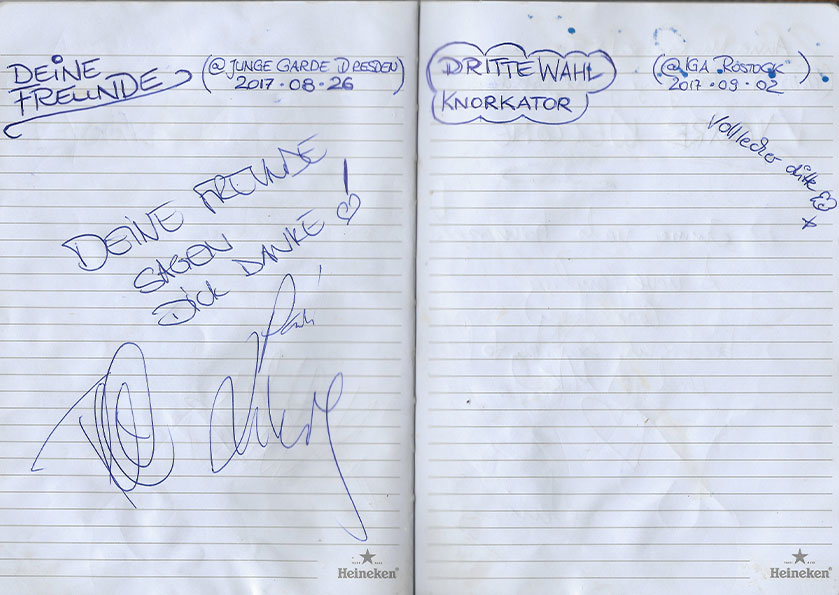 DEiNE
FREUNDE
(@JUNGE GARDE DRESDEN)
2017·08·26
DEiNE FREUNDE
SAGEN
DiCK DANKE!
DRITTE WAHL
KNORKATOR
(@IGA ROSTOCK)
2017·09·02
Heineken
Heineken